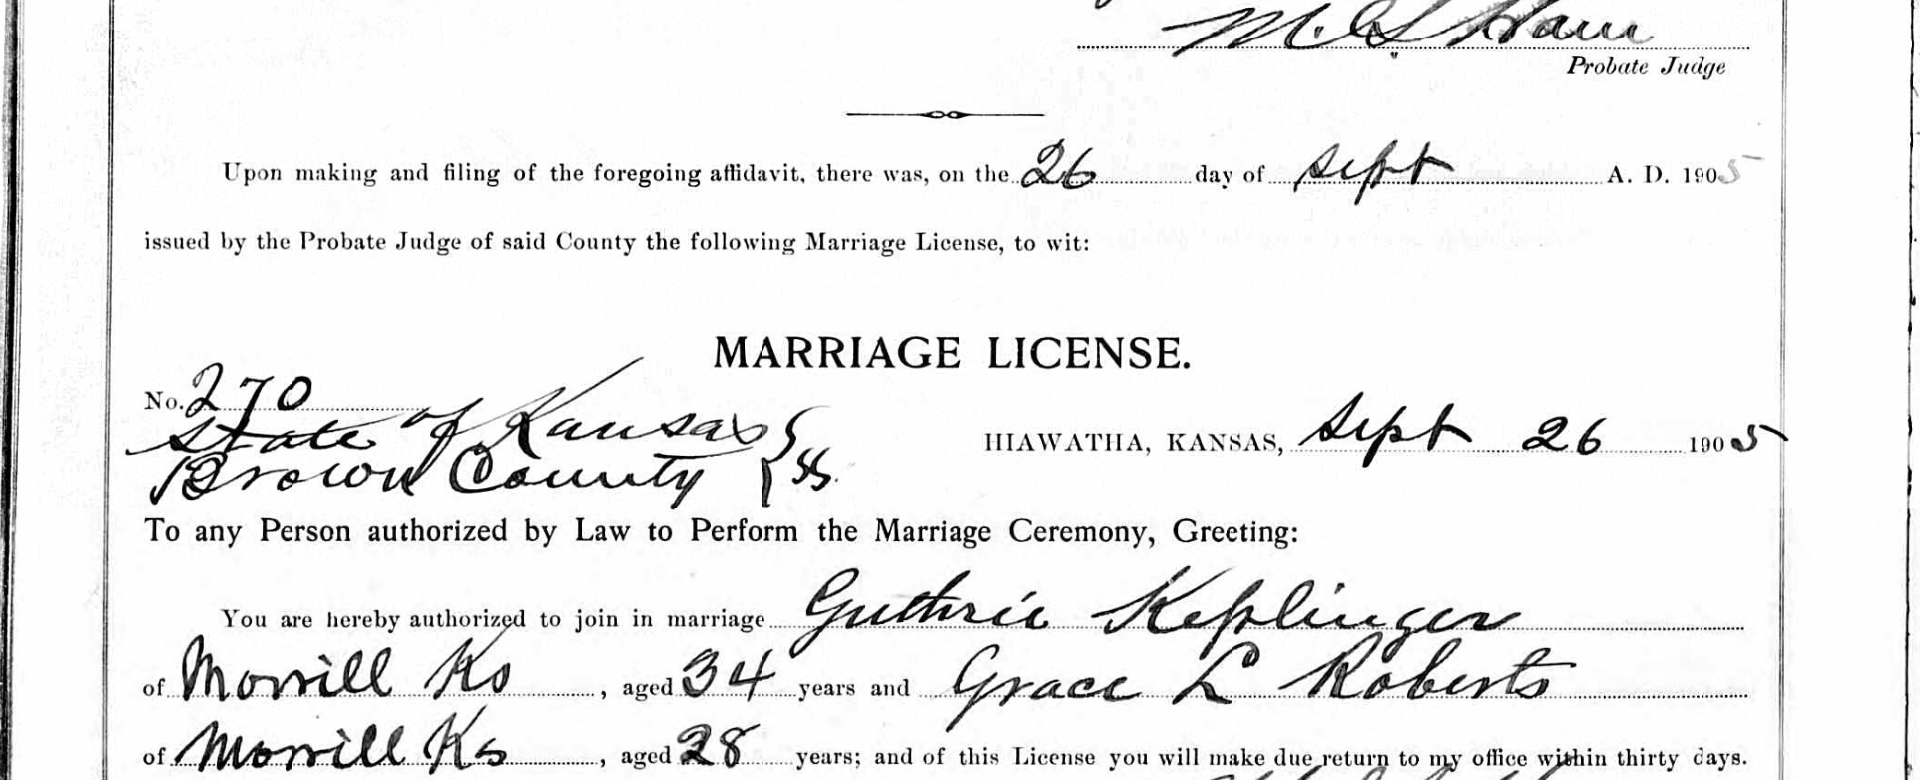 Probate Judge
Upon making and filing of the foregoing affidavit, there was, on the 26 day of Sept A. D. 1905
issued by the Probate Judge of said County the following Marriage License, to wit:
MARRIAGE LICENSE.
No. 270
State of Kansas
HIAWATHA, KANSAS, Sept 26 1905
Brown County } SS.
To any Person authorized by Law to Perform the Marriage Ceremony, Greeting:
You are hereby authorized to join in marriage Guthrie Keplinger
of Morrill Ks, aged 34 years and Grace L Roberts
of Morrill Ks, aged 28 years; and of this License you will make due return to my office within thirty days.